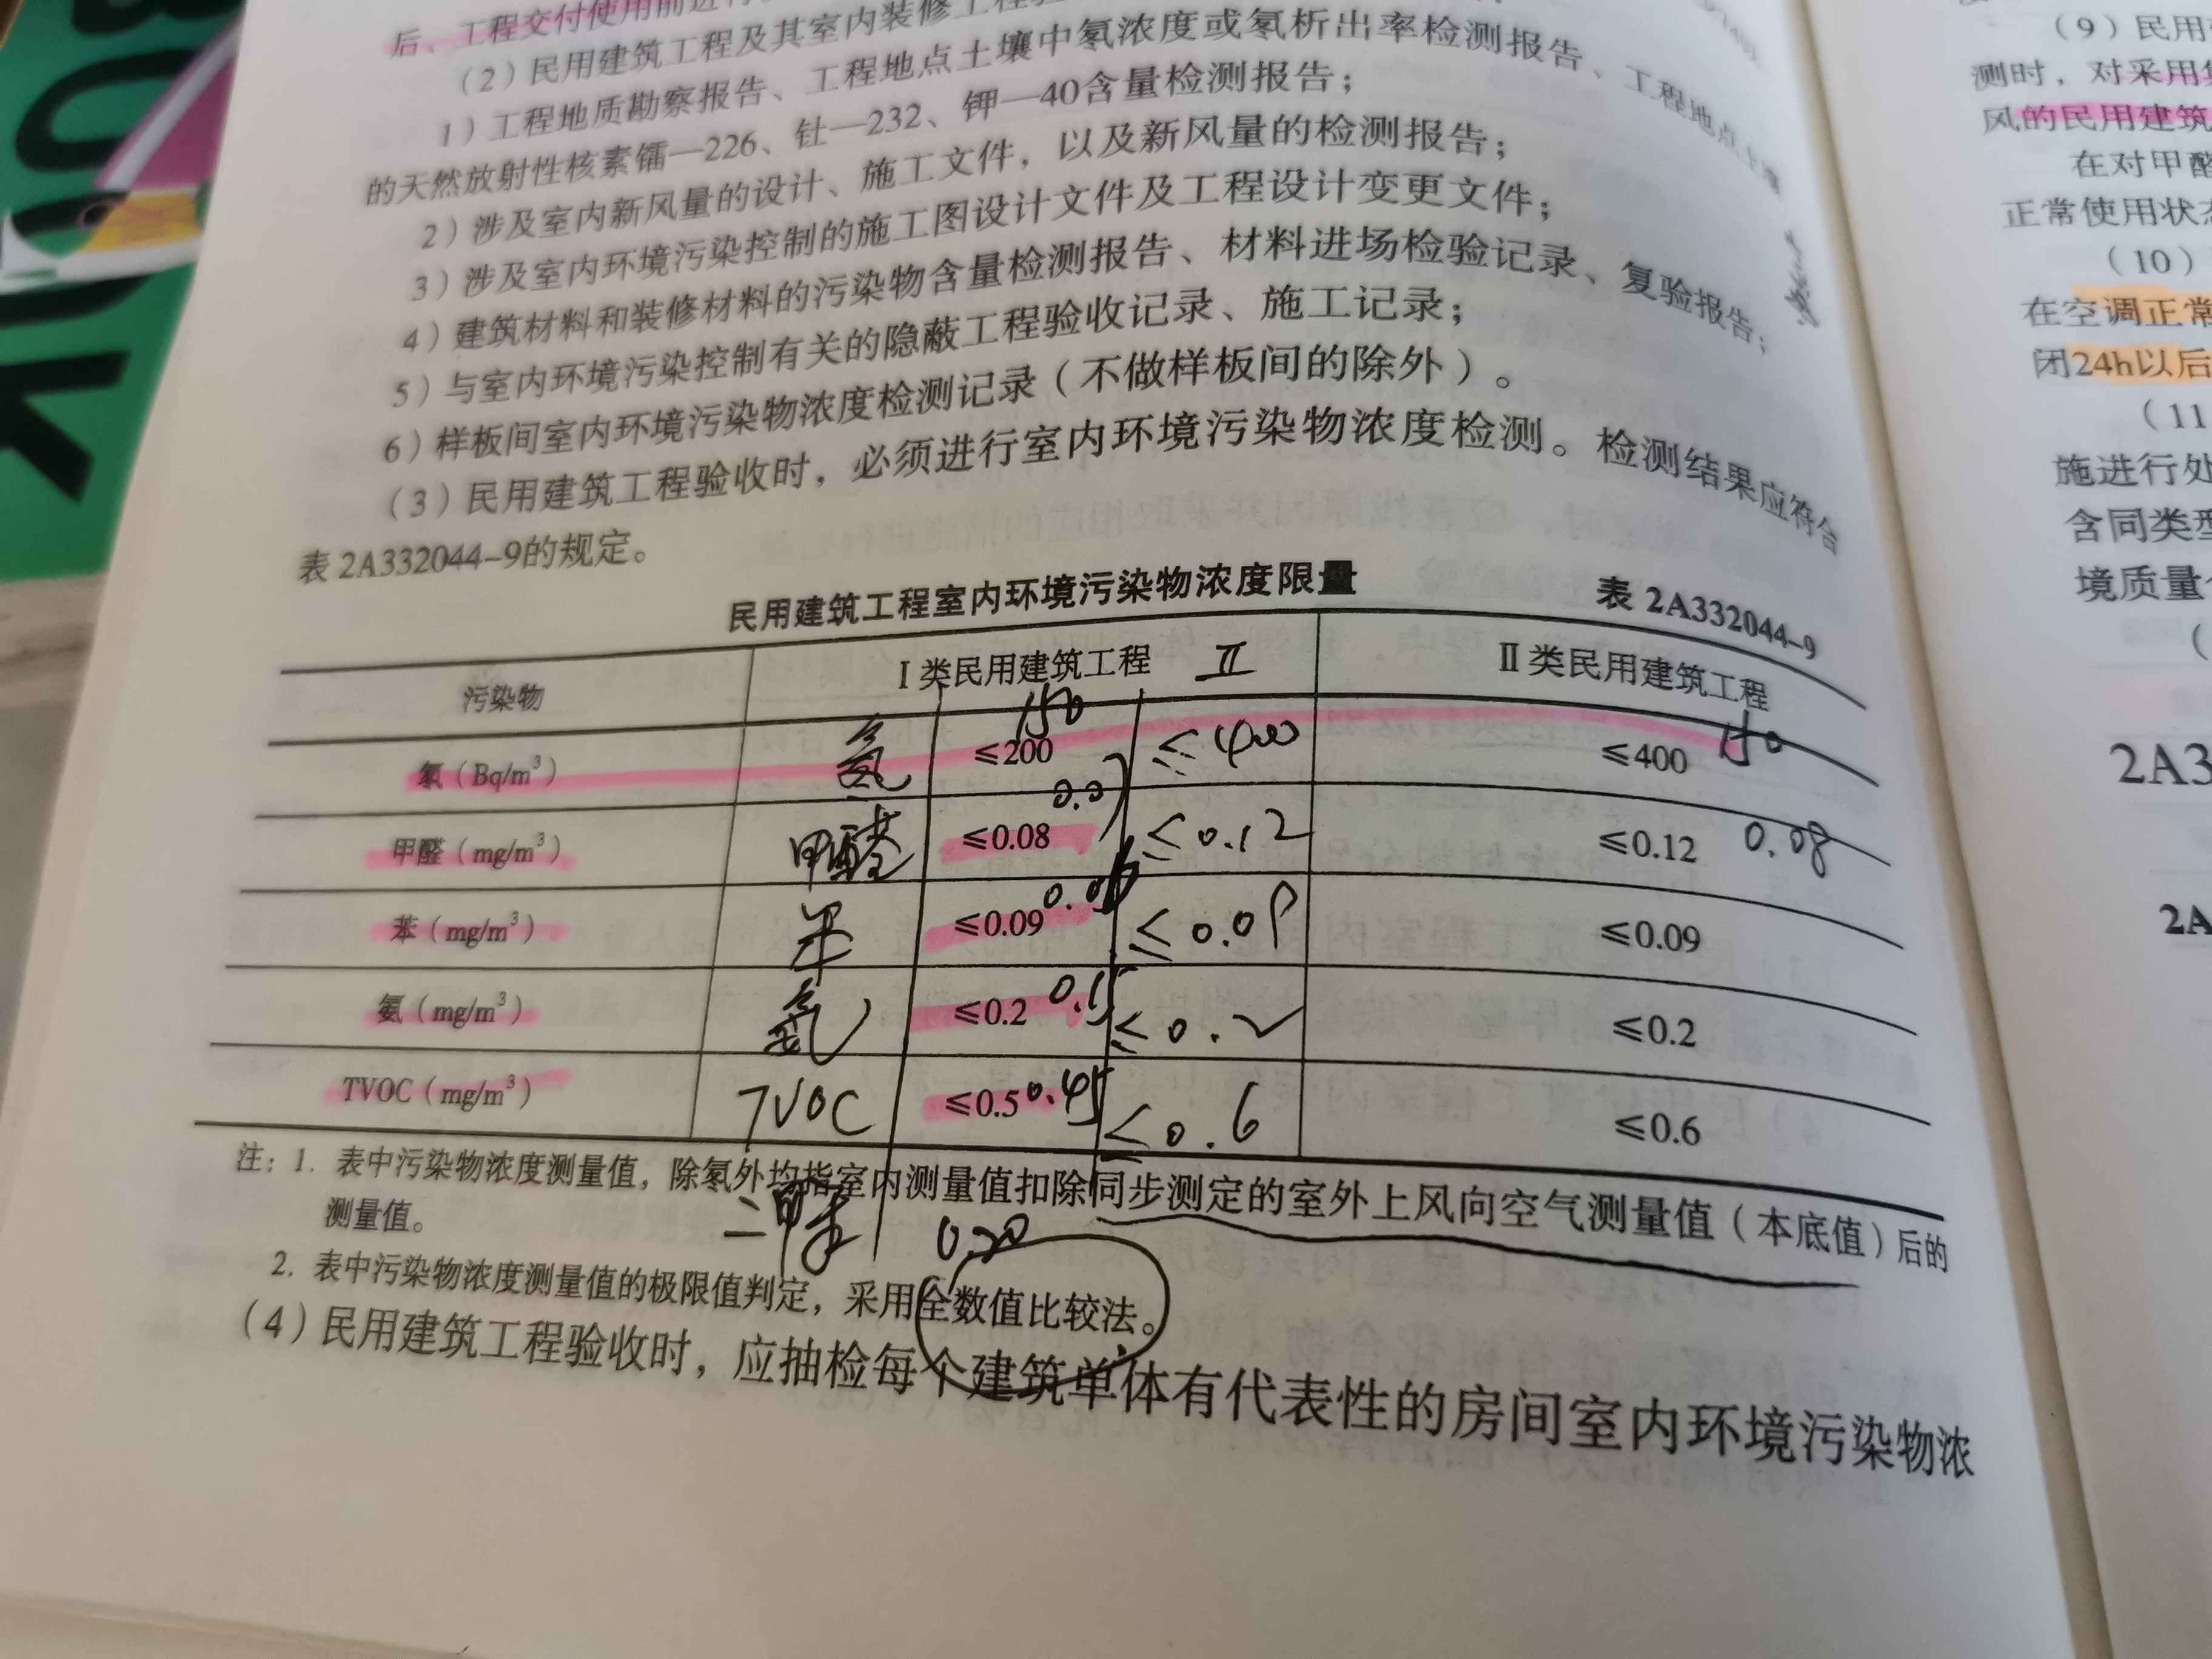 后、工程交付使用前进行
（2）民用建筑工程及其室内装修工程验
1）工程地质勘察报告、工程地点土壤中氡浓度或氡析出率检测报告、工程地点土壤
的天然放射性核素镭—226、钍—232、钾—40含量检测报告；
2）涉及室内新风量的设计、施工文件，以及新风量的检测报告；
3）涉及室内环境污染控制的施工图设计文件及工程设计变更文件；
4）建筑材料和装修材料的污染物含量检测报告、材料进场检验记录、复验报告；
5）与室内环境污染控制有关的隐蔽工程验收记录、施工记录；
6）样板间室内环境污染物浓度检测记录（不做样板间的除外）。
（3）民用建筑工程验收时，必须进行室内环境污染物浓度检测。检测结果应符合
表 2A332044-9的规定。
民用建筑工程室内环境污染物浓度限量 表 2A332044-9
污染物 Ⅰ类民用建筑工程 Ⅱ Ⅱ类民用建筑工程
氡（Bq/m³） 氡 ≤200 150 ≤400 ≤400 150
甲醛（mg/m³） 甲醛 ≤0.08 0.07 ≤0.12 ≤0.12 0.08
苯（mg/m³） 苯 ≤0.09 0.06 ≤0.09 ≤0.09
氨（mg/m³） 氨 ≤0.2 0.15 ≤0.2 ≤0.2
TVOC（mg/m³） TVOC ≤0.5 0.45 ≤0.6 ≤0.6
注：1. 表中污染物浓度测量值，除氡外均指室内测量值扣除同步测定的室外上风向空气测量值（本底值）后的
测量值。
二甲苯 0.20
2. 表中污染物浓度测量值的极限值判定，采用全数值比较法。
（4）民用建筑工程验收时，应抽检每个建筑单体有代表性的房间室内环境污染物浓
（9）民用
测时，对采用
风的民用建筑
在对甲醛
正常使用状态
（10）
在空调正常
闭24h以后
（11
施进行处
含同类型
境质量
（
2A3
2A